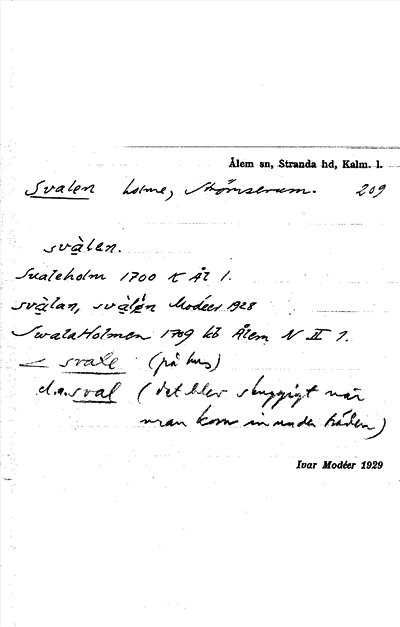 Ålem sn, Stranda hd, Kalm. l.
Svalen holme, Strömserum. 209
svàlen.
Sualeholm 1700 K Ål 1.
svàlan, svàlen Modéer 1928
SwalaHolmen 1709 kb Ålem N II 1.
< svale (på hus)
d.ä. sval (det blev skuggigt när
man kom in under träden)
Ivar Modéer 1929